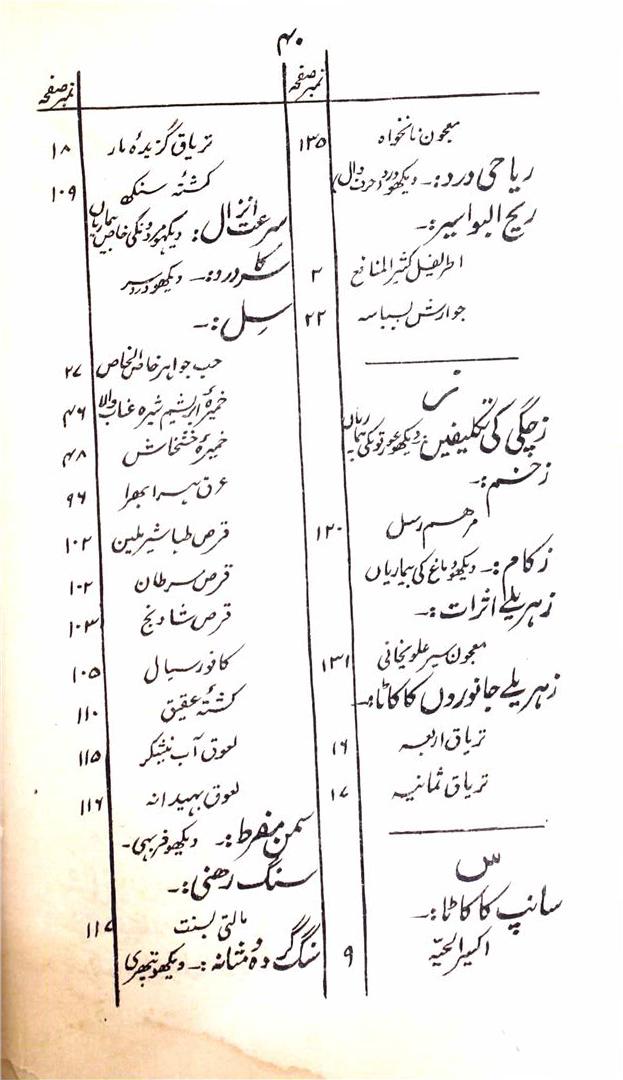 ۴۰
نمبر صفحہ
معجون نانخواہ ۱۳۵
ریاحی درد:۔ دیکھو درد (حرف دال)
ریح البواسیر:۔
اطریفل کثیر المنافع ۲
جوارش بسباسہ ۲۲
ز
زچگی کی تکلیفیں:۔ دیکھو عورتوں کی بیماریاں
زخم:۔
مرہم رسل ۱۲۰
زکام:۔ دیکھو دماغ کی بیماریاں
زہریلے اثرات:۔
معجون سیر علویخانی ۱۳۱
زہریلے جانوروں کا کاٹنا:۔
تریاق اربعہ ۱۶
تریاق ثمانیہ ۱۷
س
سانپ کا کاٹا:۔
اکسیر الحیّہ ۹
نمبر صفحہ
تریاق گزیدۂ مار ۱۸
کشتۂ سنکھ ۱۰۹
سرعت انزال:۔ دیکھو مردونکی خاص بیماریاں
سر کا درد:۔ دیکھو درد سر
سل:۔
حب جواہر خاص الخاص ۲۷
خمیرۂ ابریشم شیرہ عناب والا ۴۶
خمیرۂ خشخاش ۴۸
عرق ہرا بھرا ۹۶
قرص طباشیر ملین ۱۰۲
قرص سرطان ۱۰۲
قرص شادنج ۱۰۳
کافور سیال ۱۰۵
کشتۂ عقیق ۱۱۰
لعوق آب نیشکر ۱۱۵
لعوق بہیدانہ ۱۱۶
سمن مفرط:۔ دیکھو فربہی۔
سنگ رہنی:۔
مالتی بسنت ۱۱۷
سنگ گردہ و مثانہ:۔ دیکھو پتھری